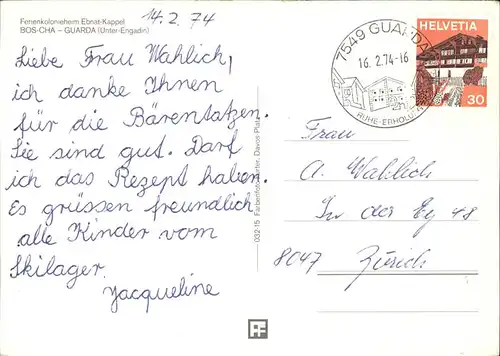 Ferienkolonieheim Ebnat-Kappel
BOS-CHA – GUARDA (Unter-Engadin)
14.2.74
Liebe Frau Wahlich,
ich danke Ihnen
für die Bärentatzen.
Sie sind gut. Darf
ich das Rezept haben.
Es grüssen freundlich
alle Kinder vom
Skilager.
Jacqueline
032-15 Farbenfoto Davos-Platz
7549 GUARDA
16.2.74-16
RUHE-ERHOLUNG
HELVETIA
30
Frau
A. Wahlich
In der Ey 48
8047 Zürich